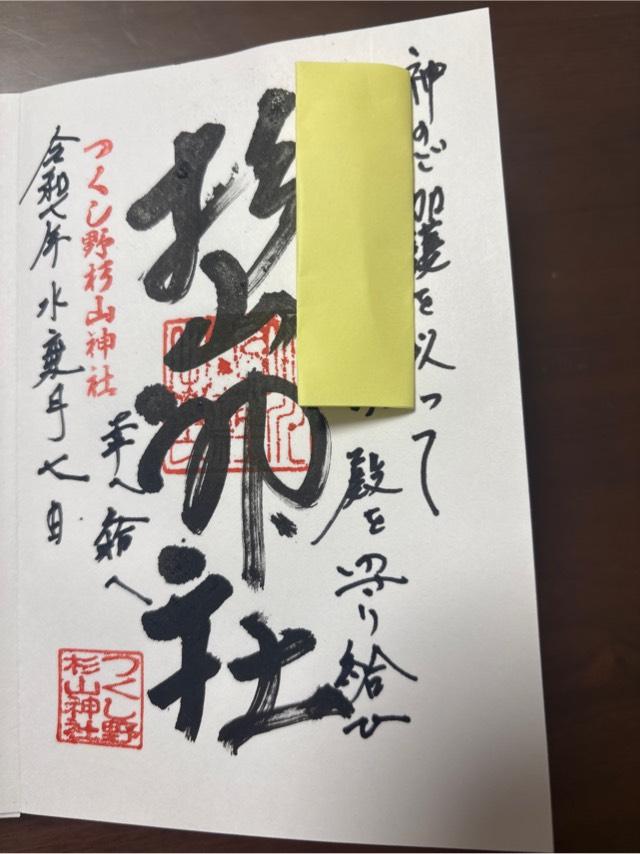 神のご加護を以って
殿を守り給ひ
幸へ給へ
杉山神社
つくし野杉山神社
令和七年水無月七日
つくし野
杉山神社